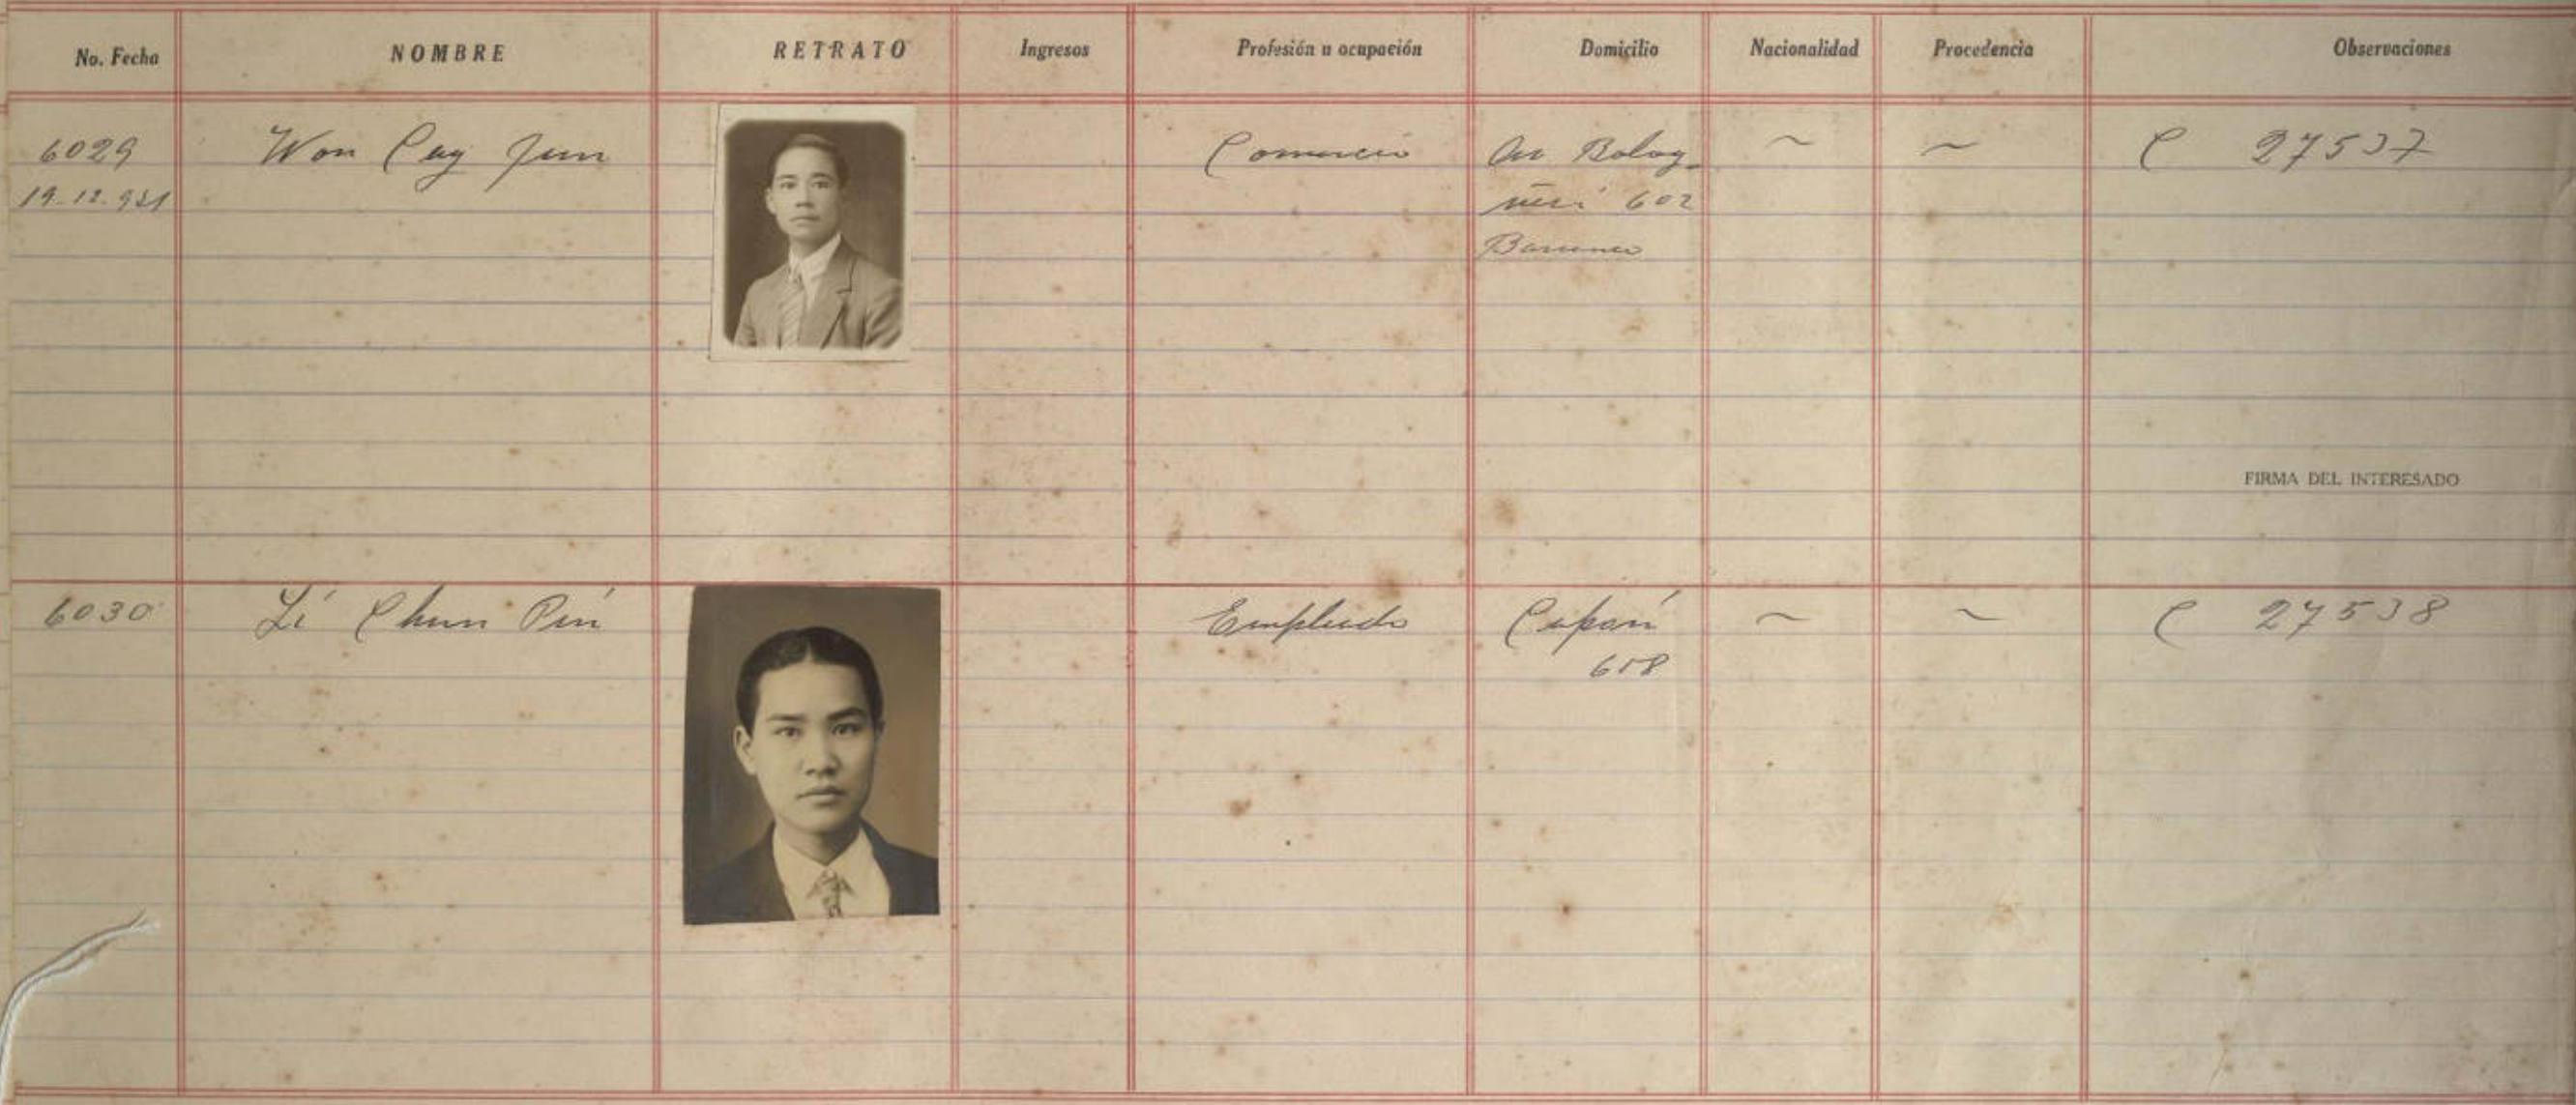 No. Fecha NOMBRE RETRATO Ingresos Profesión u ocupación Domicilio Nacionalidad Procedencia Observaciones
6029 Won Cay Jun Comercio Av Bolog- ~ ~ C 27537
19.12.931 nesi 602
Barranco
FIRMA DEL INTERESADO
6030 Li Chun Pin Empleado Capón ~ ~ C 27538
658